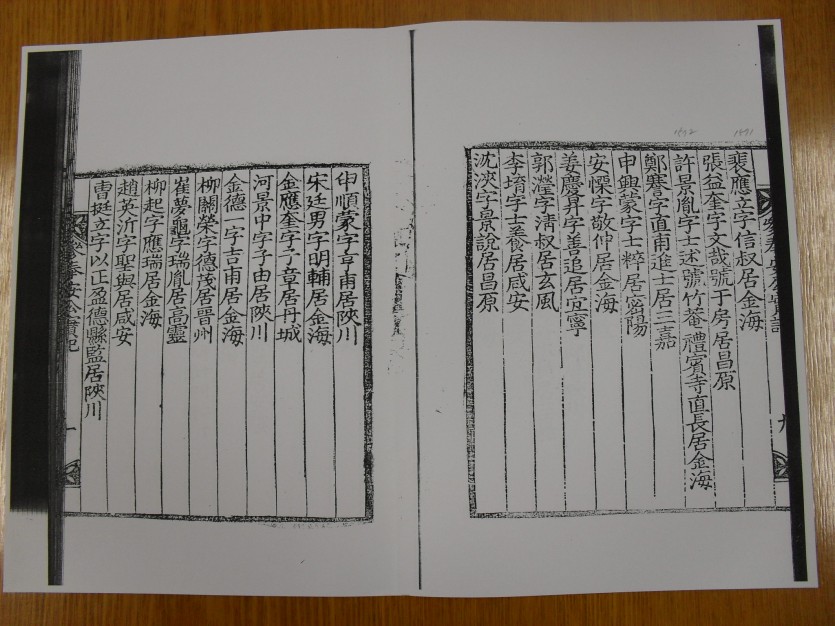 裴應立字信叔居金海
張益奎字文哉號于房居昌原
許景胤字士述號竹菴禮賓寺直長居金海
鄭謇字直甫進士居三嘉
申興蒙字士粹居密陽
安慄字敬仲居金海
姜慶昇字善追居宜寧
郭瀅字淸叔居玄風
李堉字士養居咸安
沈浹字景說居昌原
申順蒙字亨甫居陜川
宋廷男字明輔居金海
金應奎字子章居丹城
河景中字子由居陜川
金德一字吉甫居金海
柳關榮字德茂居晋州
崔夢龜字瑞胤居高靈
柳起字應瑞居金海
趙英沂字聖與居咸安
曺挺立字以正盈德縣監居陜川